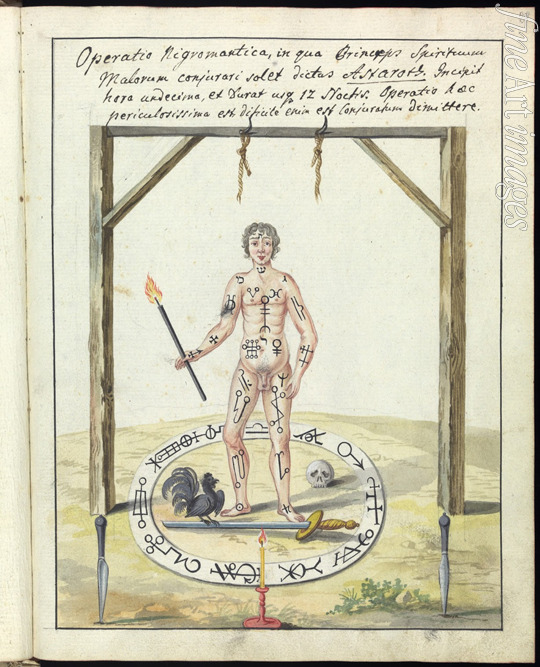 Operatio Nigromantica, in qua Princeps Spirituum
Malorum conjurari solet dictus Astaroth. Incipit
hora undecima, et Durat usq 12 Noctis. Operatio haec
periculosissima est, dificile enim est Conjuratum dimittere.
fine Art images